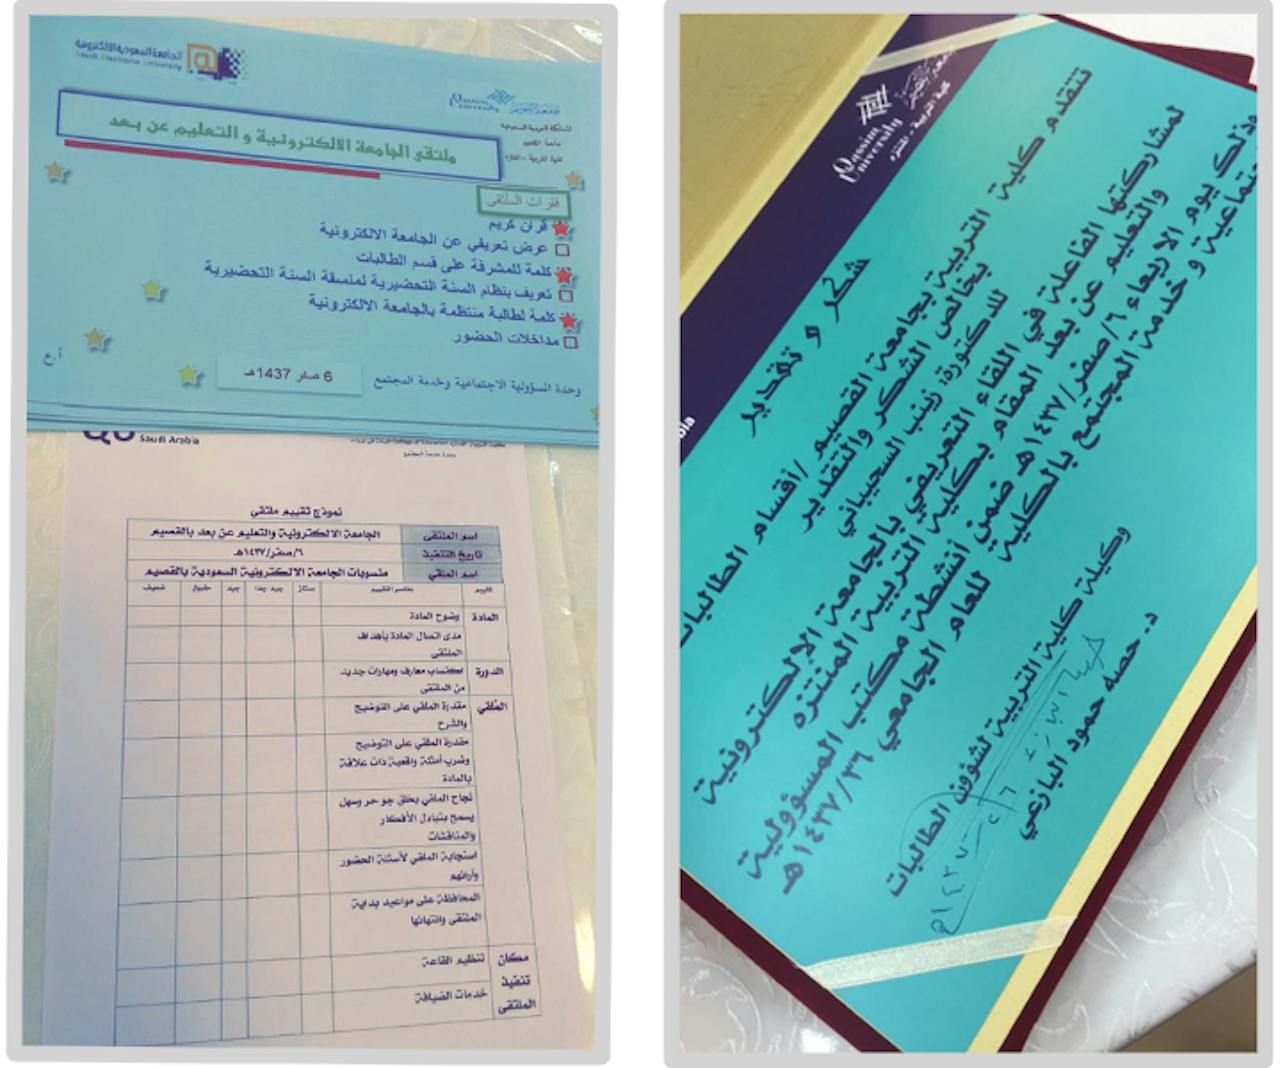 الجامعة السعودية الالكترونية
Saudi Electronic University
Qassim University
جامعة القصيم
المملكة العربية السعودية
جامعة القصيم
كلية التربية - المنتزه
ملتقى الجامعة الالكترونية و التعليم عن بعد
فقرات الملتقى
قرآن كريم
عرض تعريفي عن الجامعة الالكترونية
كلمة للمشرفة على قسم الطالبات
تعريف بنظام السنة التحضيرية لمنسقة السنة التحضيرية
كلمة لطالبة منتظمة بالجامعة الالكترونية
مداخلات الحضور
أ.ع
6 صفر 1437هـ
وحدة المسؤولية الاجتماعية وخدمة المجتمع
QU
Saudi Arabia
وحدة خدمة المجتمع
نموذج تقييم ملتقى
اسم الملتقى الجامعة الالكترونية والتعليم عن بعد بالقصيم
تاريخ التنفيذ ٦/صفر/١٤٣٧هـ
اسم الملقي منسوبات الجامعة الالكترونية السعودية بالقصيم
عناصر التقييم ممتاز جيد جدا جيد مقبول ضعيف
المادة وضوح المادة
مدى اتصال المادة بأهداف
الملتقى
الدورة اكتساب معارف ومهارات جديد
من الملتقى
الملقي مقدرة الملقي على التوضيح
والشرح
مقدرة الملقي على التوضيح
وضرب أمثلة واقعية ذات علاقة
بالمادة
نجاح الملقي بخلق جو حر وسهل
يسمح بتبادل الأفكار
والمناقشات
استجابة الملقي لأسئلة الحضور
وآرائهم
المحافظة على مواعيد بداية
الملتقى وانتهائها
مكان تنفيذ الملتقى تنظيم القاعة
خدمات الضيافة
Qassim University
كلية التربية - المنتزه
شكر و تقدير
تتقدم كلية التربية بجامعة القصيم /أقسام الطالبات
بخالص الشكر والتقدير
للدكتورة: زينب السحيباني
لمشاركتها الفاعلة في اللقاء التعريفي بالجامعة الإلكترونية
والتعليم عن بعد المقام بكلية التربية المنتزه
وذلك يوم الاربعاء ٦/صفر/١٤٣٧هـ ضمن أنشطة مكتب المسؤولية
الاجتماعية و خدمة المجتمع بالكلية للعام الجامعي ٣٦/١٤٣٧هـ
وكيلة كلية التربية لشؤون الطالبات
د. حصه حمود البازعي